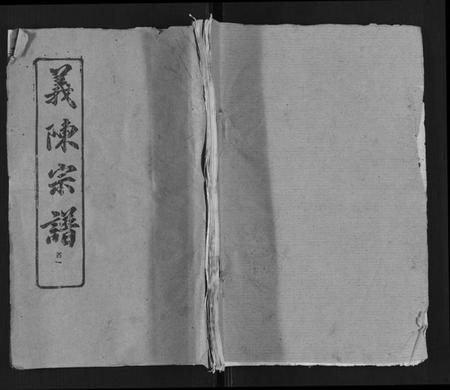 義陳宗譜
首一